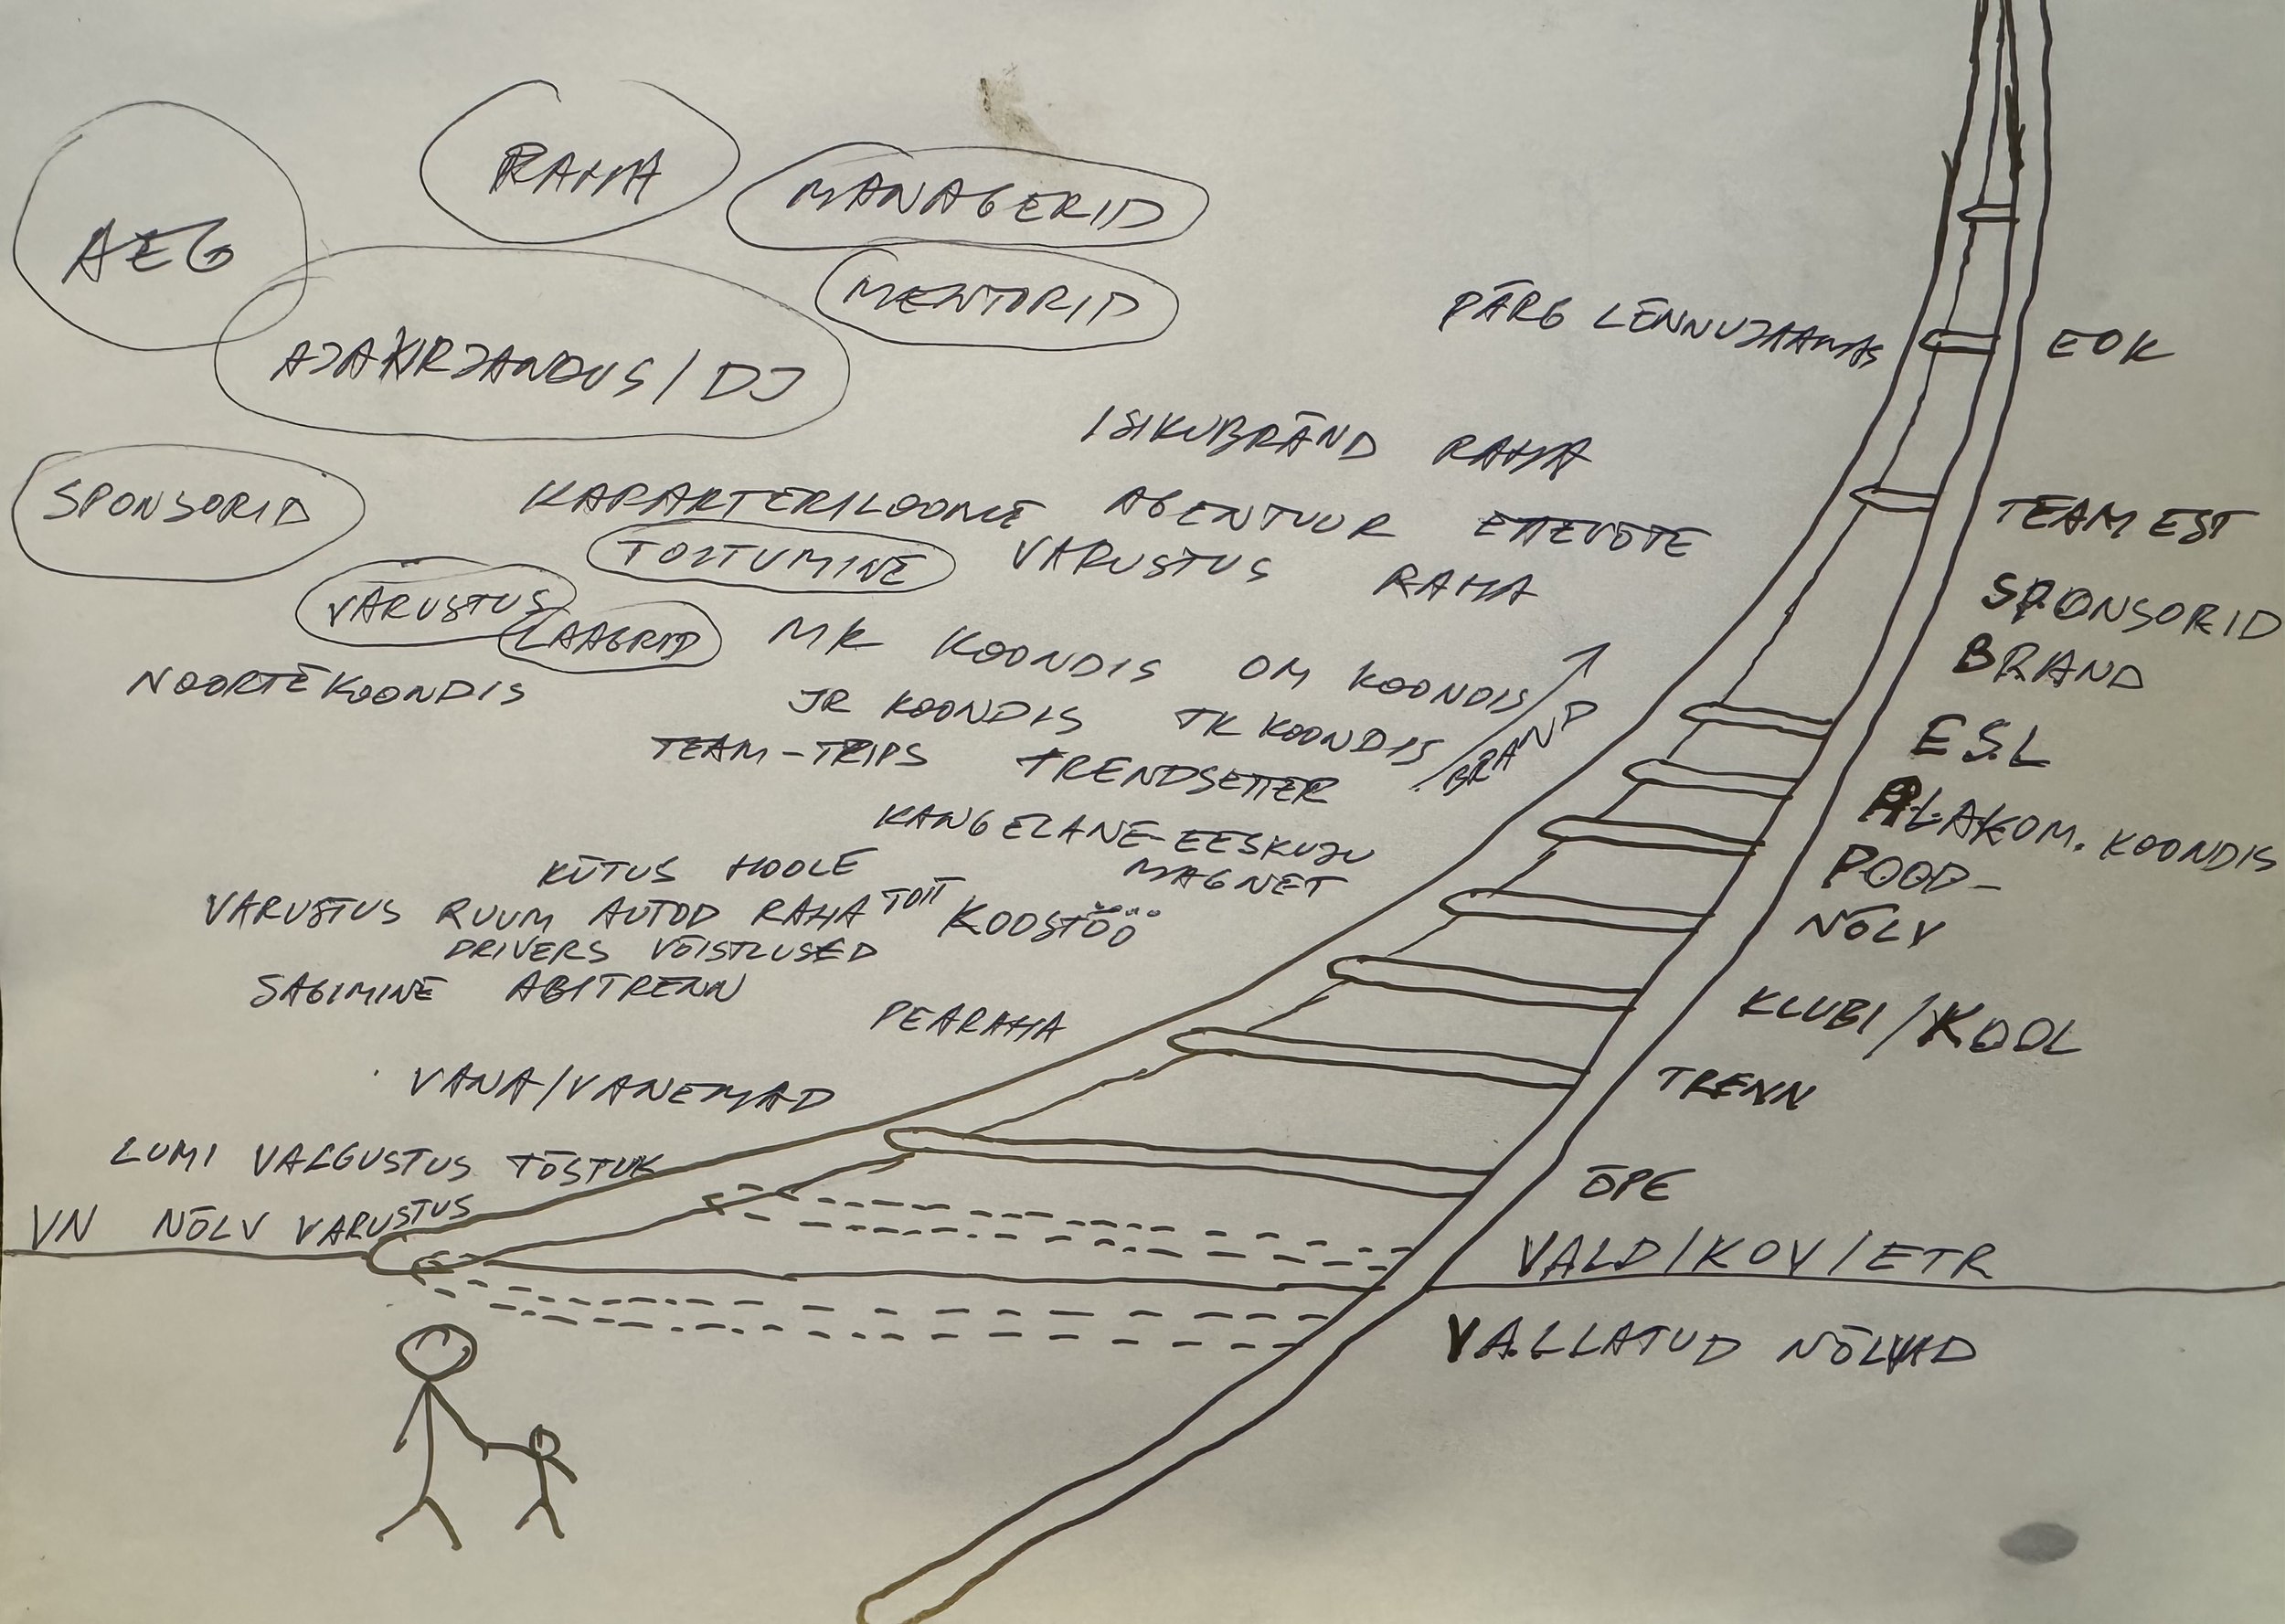 RAHA
MANAGERID
AEG
MENTORID
AJAKIRJANDUS/DJ
PÄRG LENNUJAAMAS
EOK
ISIKUBRÄND RAHA
SPONSORID
KARAKTERILOOME AGENTUUR ETTEVÕTE
TEAM EST
TOITUMINE VARUSTUS RAHA
VARUSTUS
LAAGRID
SPONSORID
MK KOONDIS OM KOONDIS
BRAND
NOORTEKOONDIS
JR KOONDIS TK KOONDIS
BRAND
ESL
TEAM-TRIPS TRENDSETTER
KANGELANE-EESKUJU
MAGNET
ALAKOM. KOONDIS
KÜTUS HOOLE
POOD-
NÕLV
VARUSTUS RUUM AUTOD RAHA TOIT KOOSTÖÖ
DRIVERS VÕISTLUSED
SAGIMINE ABITRENN
KLUBI/KOOL
PEARAHA
TRENN
VANA/VANEMAD
LUMI VALGUSTUS TÕSTUK
ÕPE
VN NÕLV VARUSTUS
VALD/KOV/ETR
VALLATUD NÕLVAD